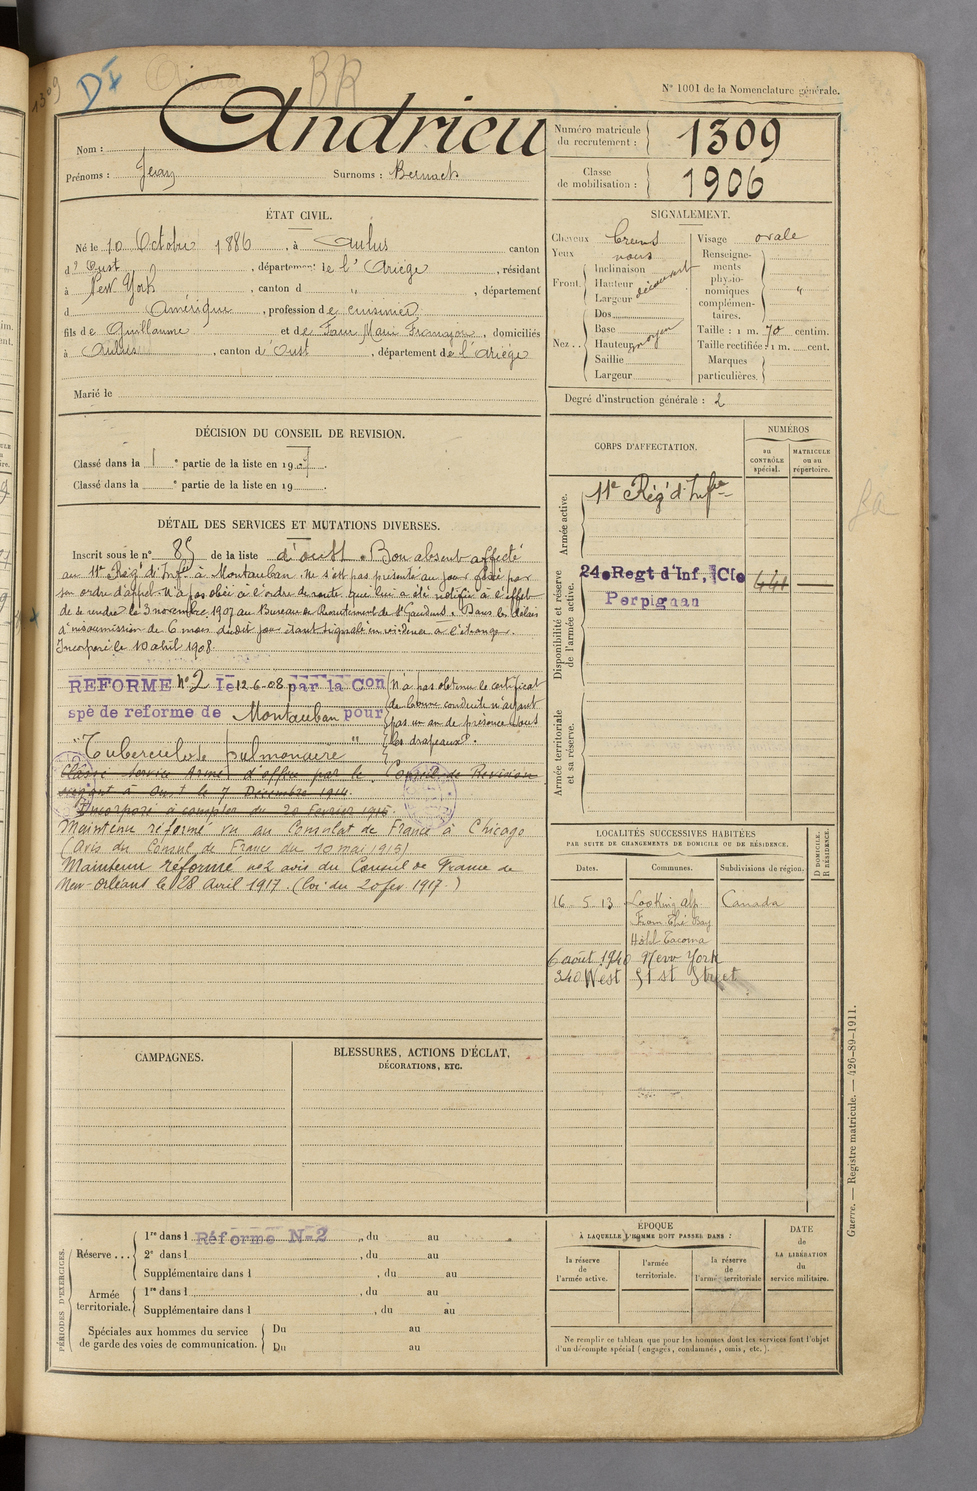 1309
BR
N° 1001 de la Nomenclature générale.
Nom : Andrieu
Prénoms : Jean Surnoms : Bernach
Numéro matricule du recrutement : 1309
Classe de mobilisation : 1906
ÉTAT CIVIL.
Né le 10 Octobre 1886, à Aulus canton
d'Oust, département de l'Ariège, résidant
à New York, canton d „ , département
d Amérique, profession de cuisinier
fils de Guillaume et de Faur Marie Françoise, domiciliés
à Aulus, canton d'Oust, département de l'Ariège
Marié le
SIGNALEMENT.
Cheveux bruns
Yeux
Front Inclinaison
Hauteur découvert
Largeur
Nez Dos
Base
Hauteur moyen
Saillie
Largeur
Visage ovale
Renseignements physionomiques complémentaires. "
Taille : 1 m. 70 centim.
Taille rectifiée : 1 m. cent.
Marques particulières.
Degré d'instruction générale : 2
DÉCISION DU CONSEIL DE REVISION.
Classé dans la 1 e partie de la liste en 1907.
Classé dans la e partie de la liste en 19
DÉTAIL DES SERVICES ET MUTATIONS DIVERSES.
Inscrit sous le n° 85 de la liste d'oust. Bon absent affecté
au 11e Rég' d'Infie à Montauban. Ne s'est pas présenté au jour fixé par
son ordre d'appel. N'a pas obéi à l'ordre de route que lui a été notifié à l'effet
de se rendre le 3 novembre 1907 au Bureau de Recrutement de St Gaudens. Dans les délais
d'insoumission de 6 mois dudit jour étant signalé en résidence à l'étranger.
Incorporé le 10 avril 1908.
REFORME N° 2 le 12-6-08 par la Con
spé de reforme de Montauban pour
"Tuberculose pulmonaire"
N'a pas obtenu le certificat
de bonne conduite n'ayant
pas un an de présence sous
les drapeaux.
Classé Service Armé d'office par le Conseil de Revision
siégeant à Oust le 7 Décembre 1914.
Incorporé à compter du 20 Février 1915
Maintenu réformé vu au Consulat de France à Chicago
(Avis du Consul de France du 10 mai 1915)
Maintenu réformé n°2 avis du Consul de France de
New-Orléans le 28 Avril 1917. (loi du 20 fév. 1917.)
CORPS D'AFFECTATION.
NUMÉROS
au CONTRÔLE spécial.
MATRICULE ou au répertoire.
Armée active.
11e Rég' d'Infie
Disponibilité et réserve de l'armée active.
24e Regt d'Inf, Cie
Perpignan
441
Armée territoriale et sa réserve.
LOCALITÉS SUCCESSIVES HABITÉES
PAR SUITE DE CHANGEMENTS DE DOMICILE OU DE RÉSIDENCE.
Dates. Communes. Subdivisions de région.
D DOMICILE. R RÉSIDENCE.
16-5-13 Canada
Hôtel Tacoma
6 août 1940 New York
340 West 51 st Street
CAMPAGNES.
BLESSURES, ACTIONS D'ÉCLAT,
DÉCORATIONS, ETC.
PÉRIODES D'EXERCICES.
Réserve... 1re dans l Réforme N-2, du au
2e dans l , du au
Supplémentaire dans l , du au
Armée territoriale. 1re dans l , du au
Supplémentaire dans l , du au
Spéciales aux hommes du service de garde des voies de communication. Du au
Du au
ÉPOQUE
À LAQUELLE L'HOMME DOIT PASSER DANS :
la réserve de l'armée active.
l'armée territoriale.
la réserve de l'armée territoriale
DATE de LA LIBÉRATION du service militaire.
Ne remplir ce tableau que pour les hommes dont les services font l'objet
d'un décompte spécial (engagés, condamnés, omis, etc.).
Guerre. — Registre matricule. — 426-89-1911.